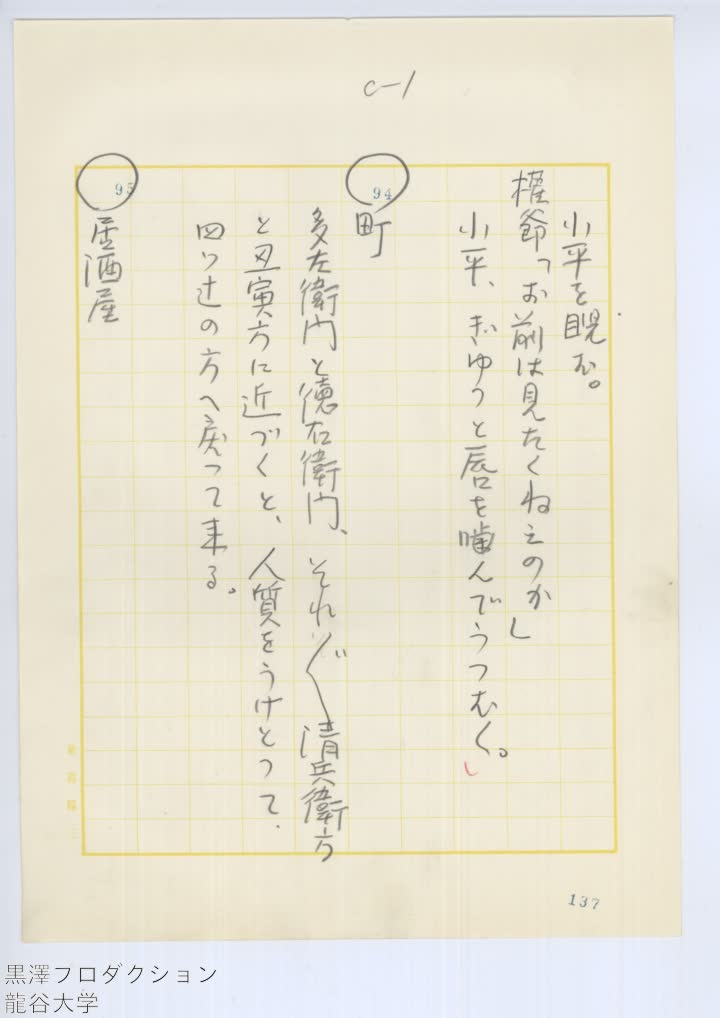 c-1
小平を睨む。
権爺「お前は見たくねえのか」
小平、ぎゆつと唇を噛んでうつむく。
94
町
多左衛門と徳右衛門、それ〴〵清兵衛方
と丑寅方に近づくと、人質をうけとつて、
四ツ辻の方へ戻つて来る。
95
居酒屋
137
黒澤プロダクション
龍谷大学